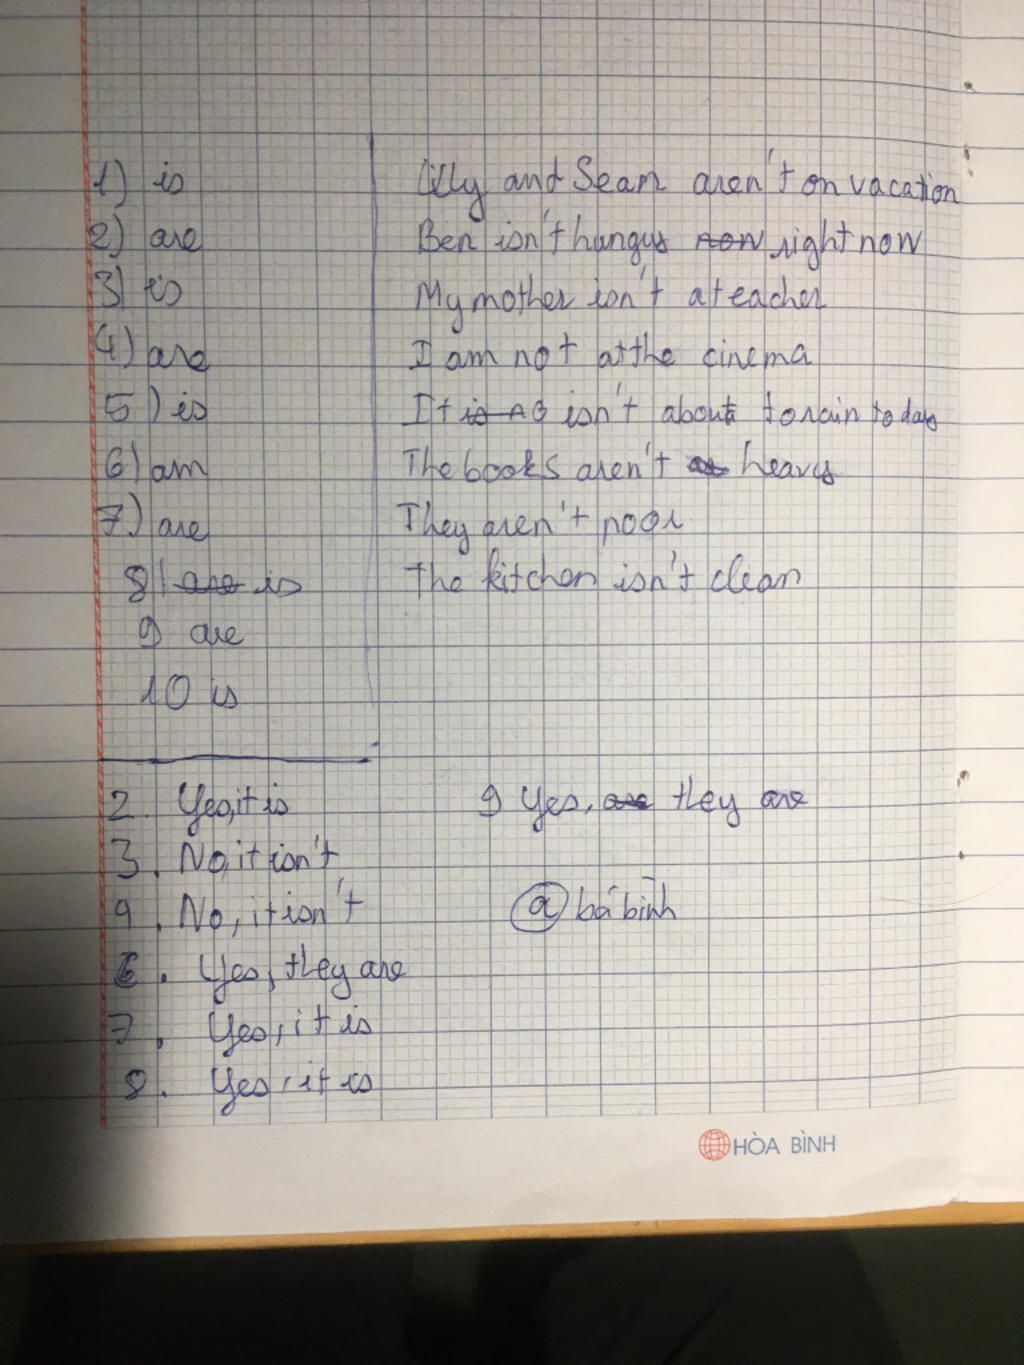 1) is
2) are
3) is
4) are
5) is
6) am
7) are
8) is
9 are
10 is
Lilly and Sean aren't on vacation
Ben isn't hungry right now
My mother isn't a teacher
I am not at the cinema
It isn't about to rain today
The books aren't heavy
They aren't poor
The kitchen isn't clean
2. Yes, it is
3. No, it isn't
4. No, it isn't
6. Yes, they are
7. Yes, it is
8. Yes, it is
9 Yes, they are
@ bá bình
HÒA BÌNH